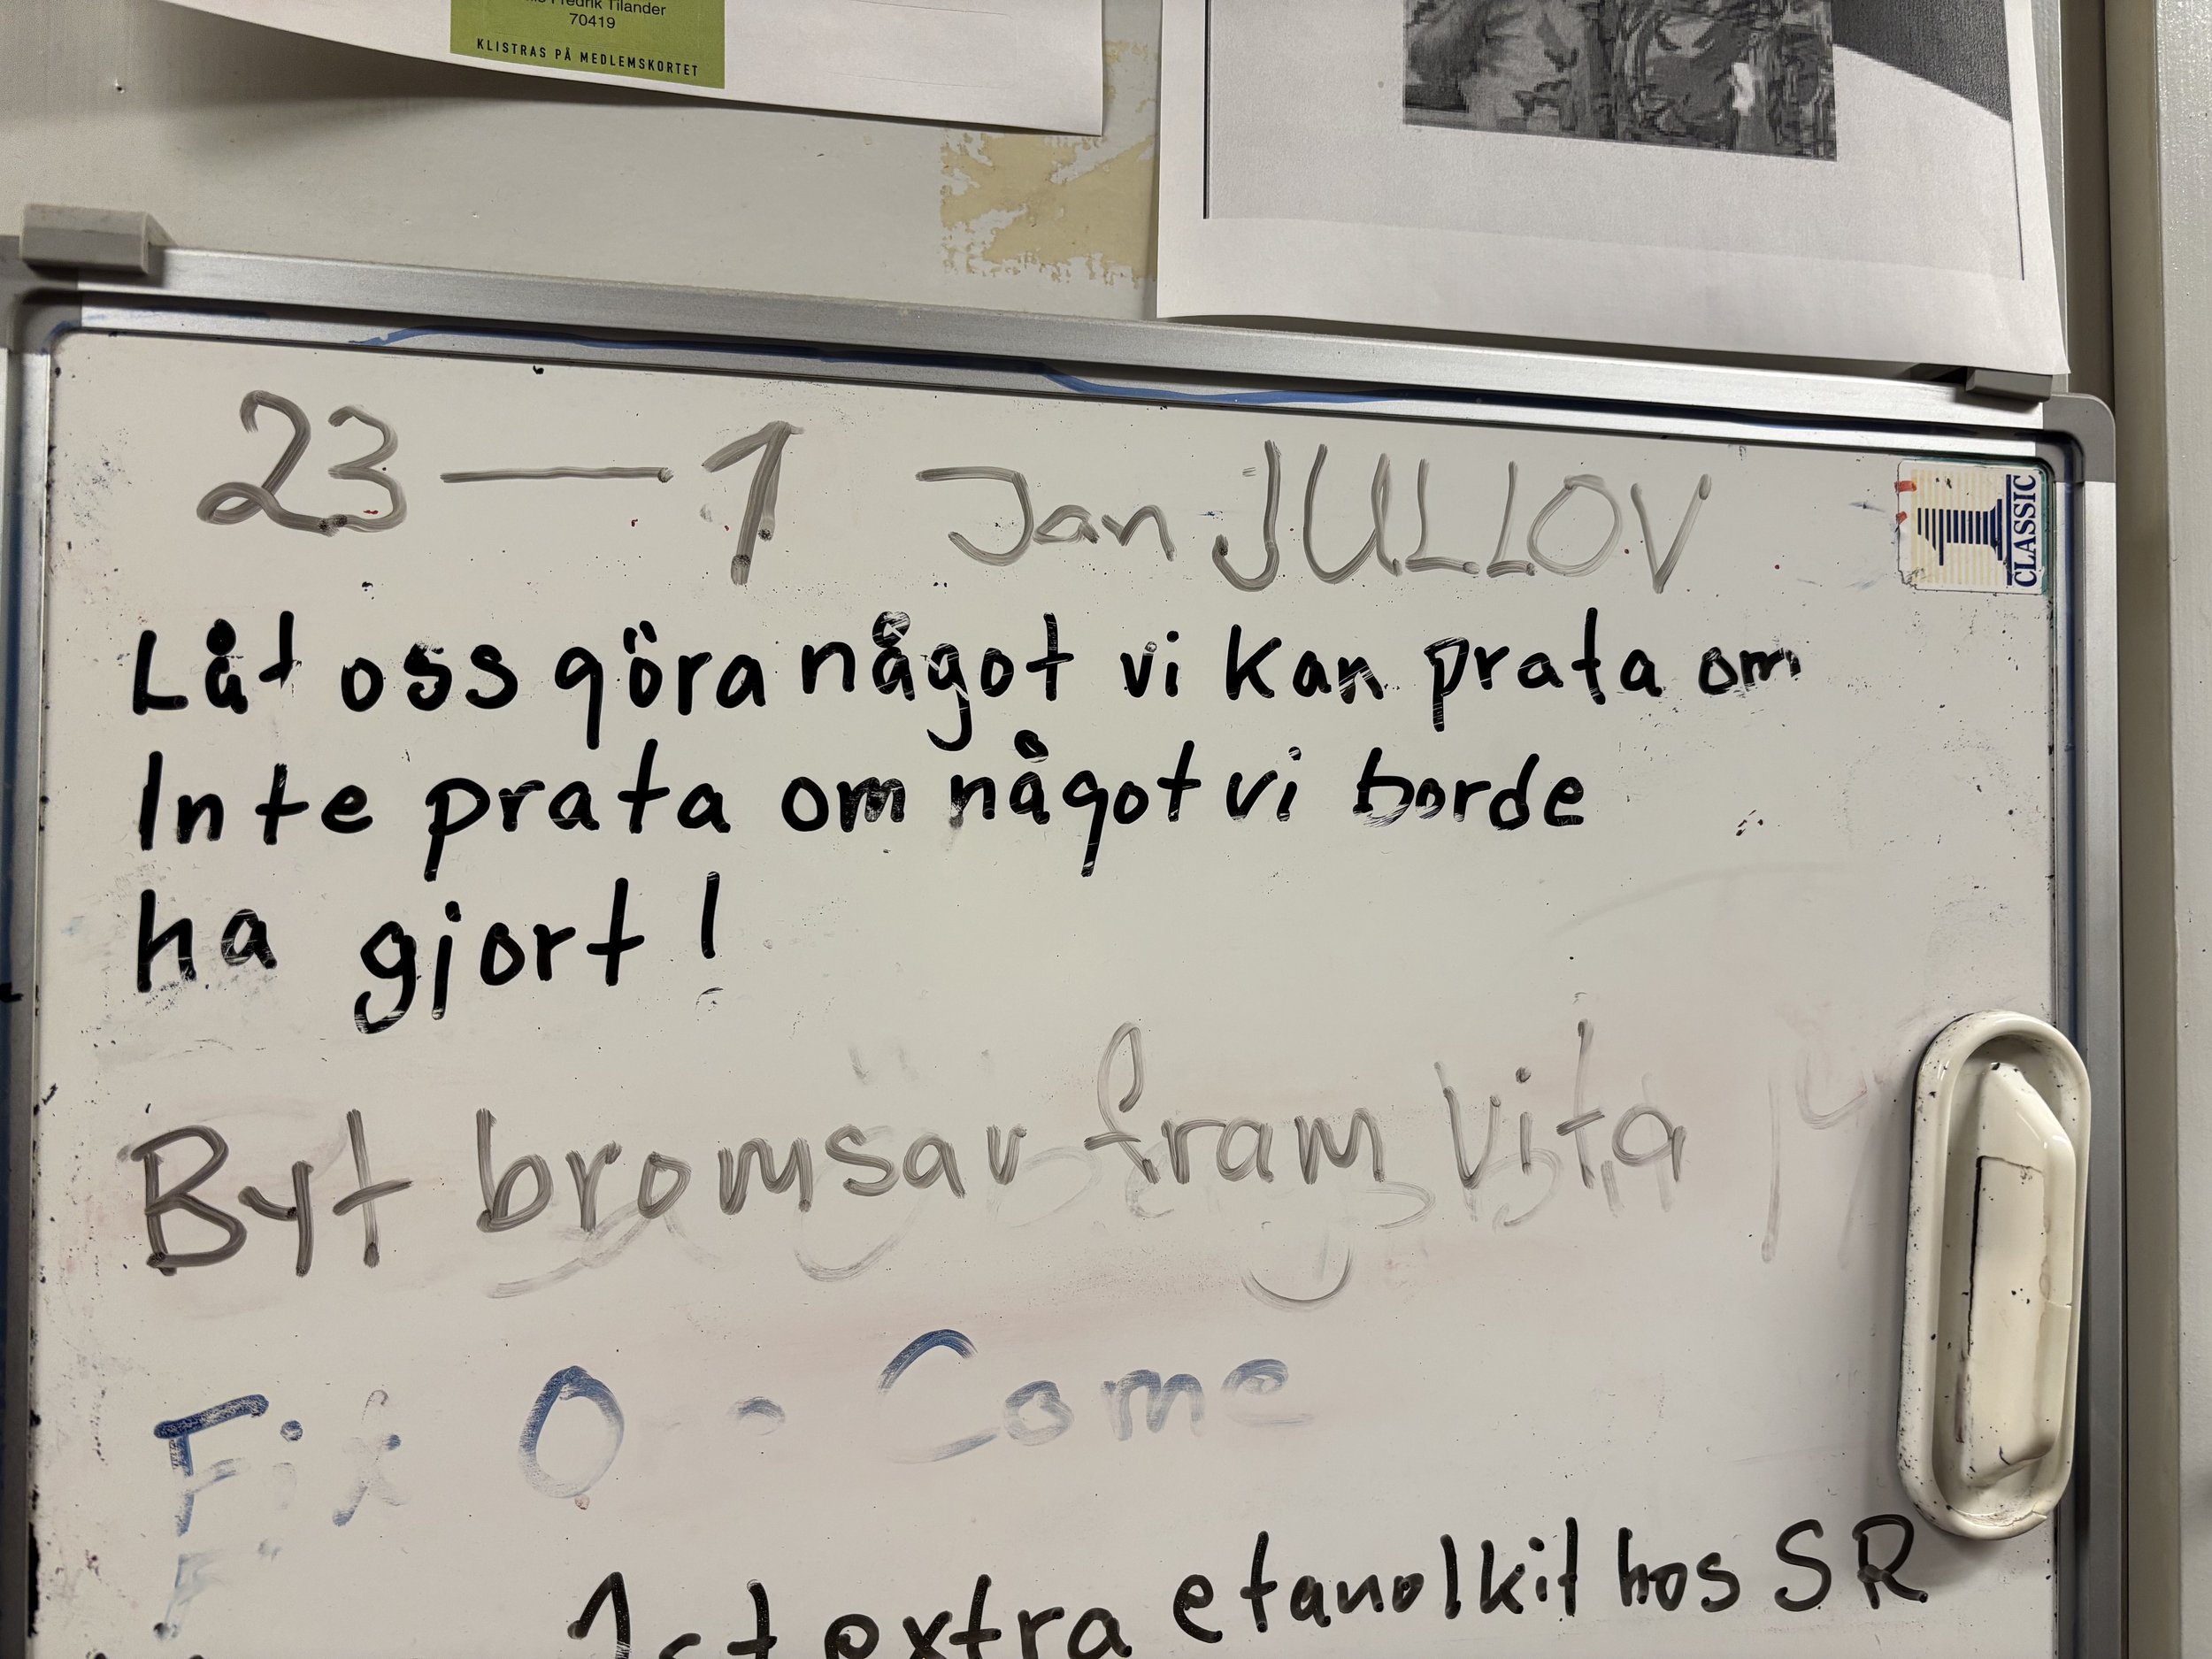 Fredrik Tilander
70419
KLISTRAS PÅ MEDLEMSKORTET
23 — 1 Jan JULLOV
CLASSIC
Låt oss göra något vi kan prata om
Inte prata om något vi borde
ha gjort!
Byt bromsar fram vita
Fix Come
1st extra etanolkit hos SR